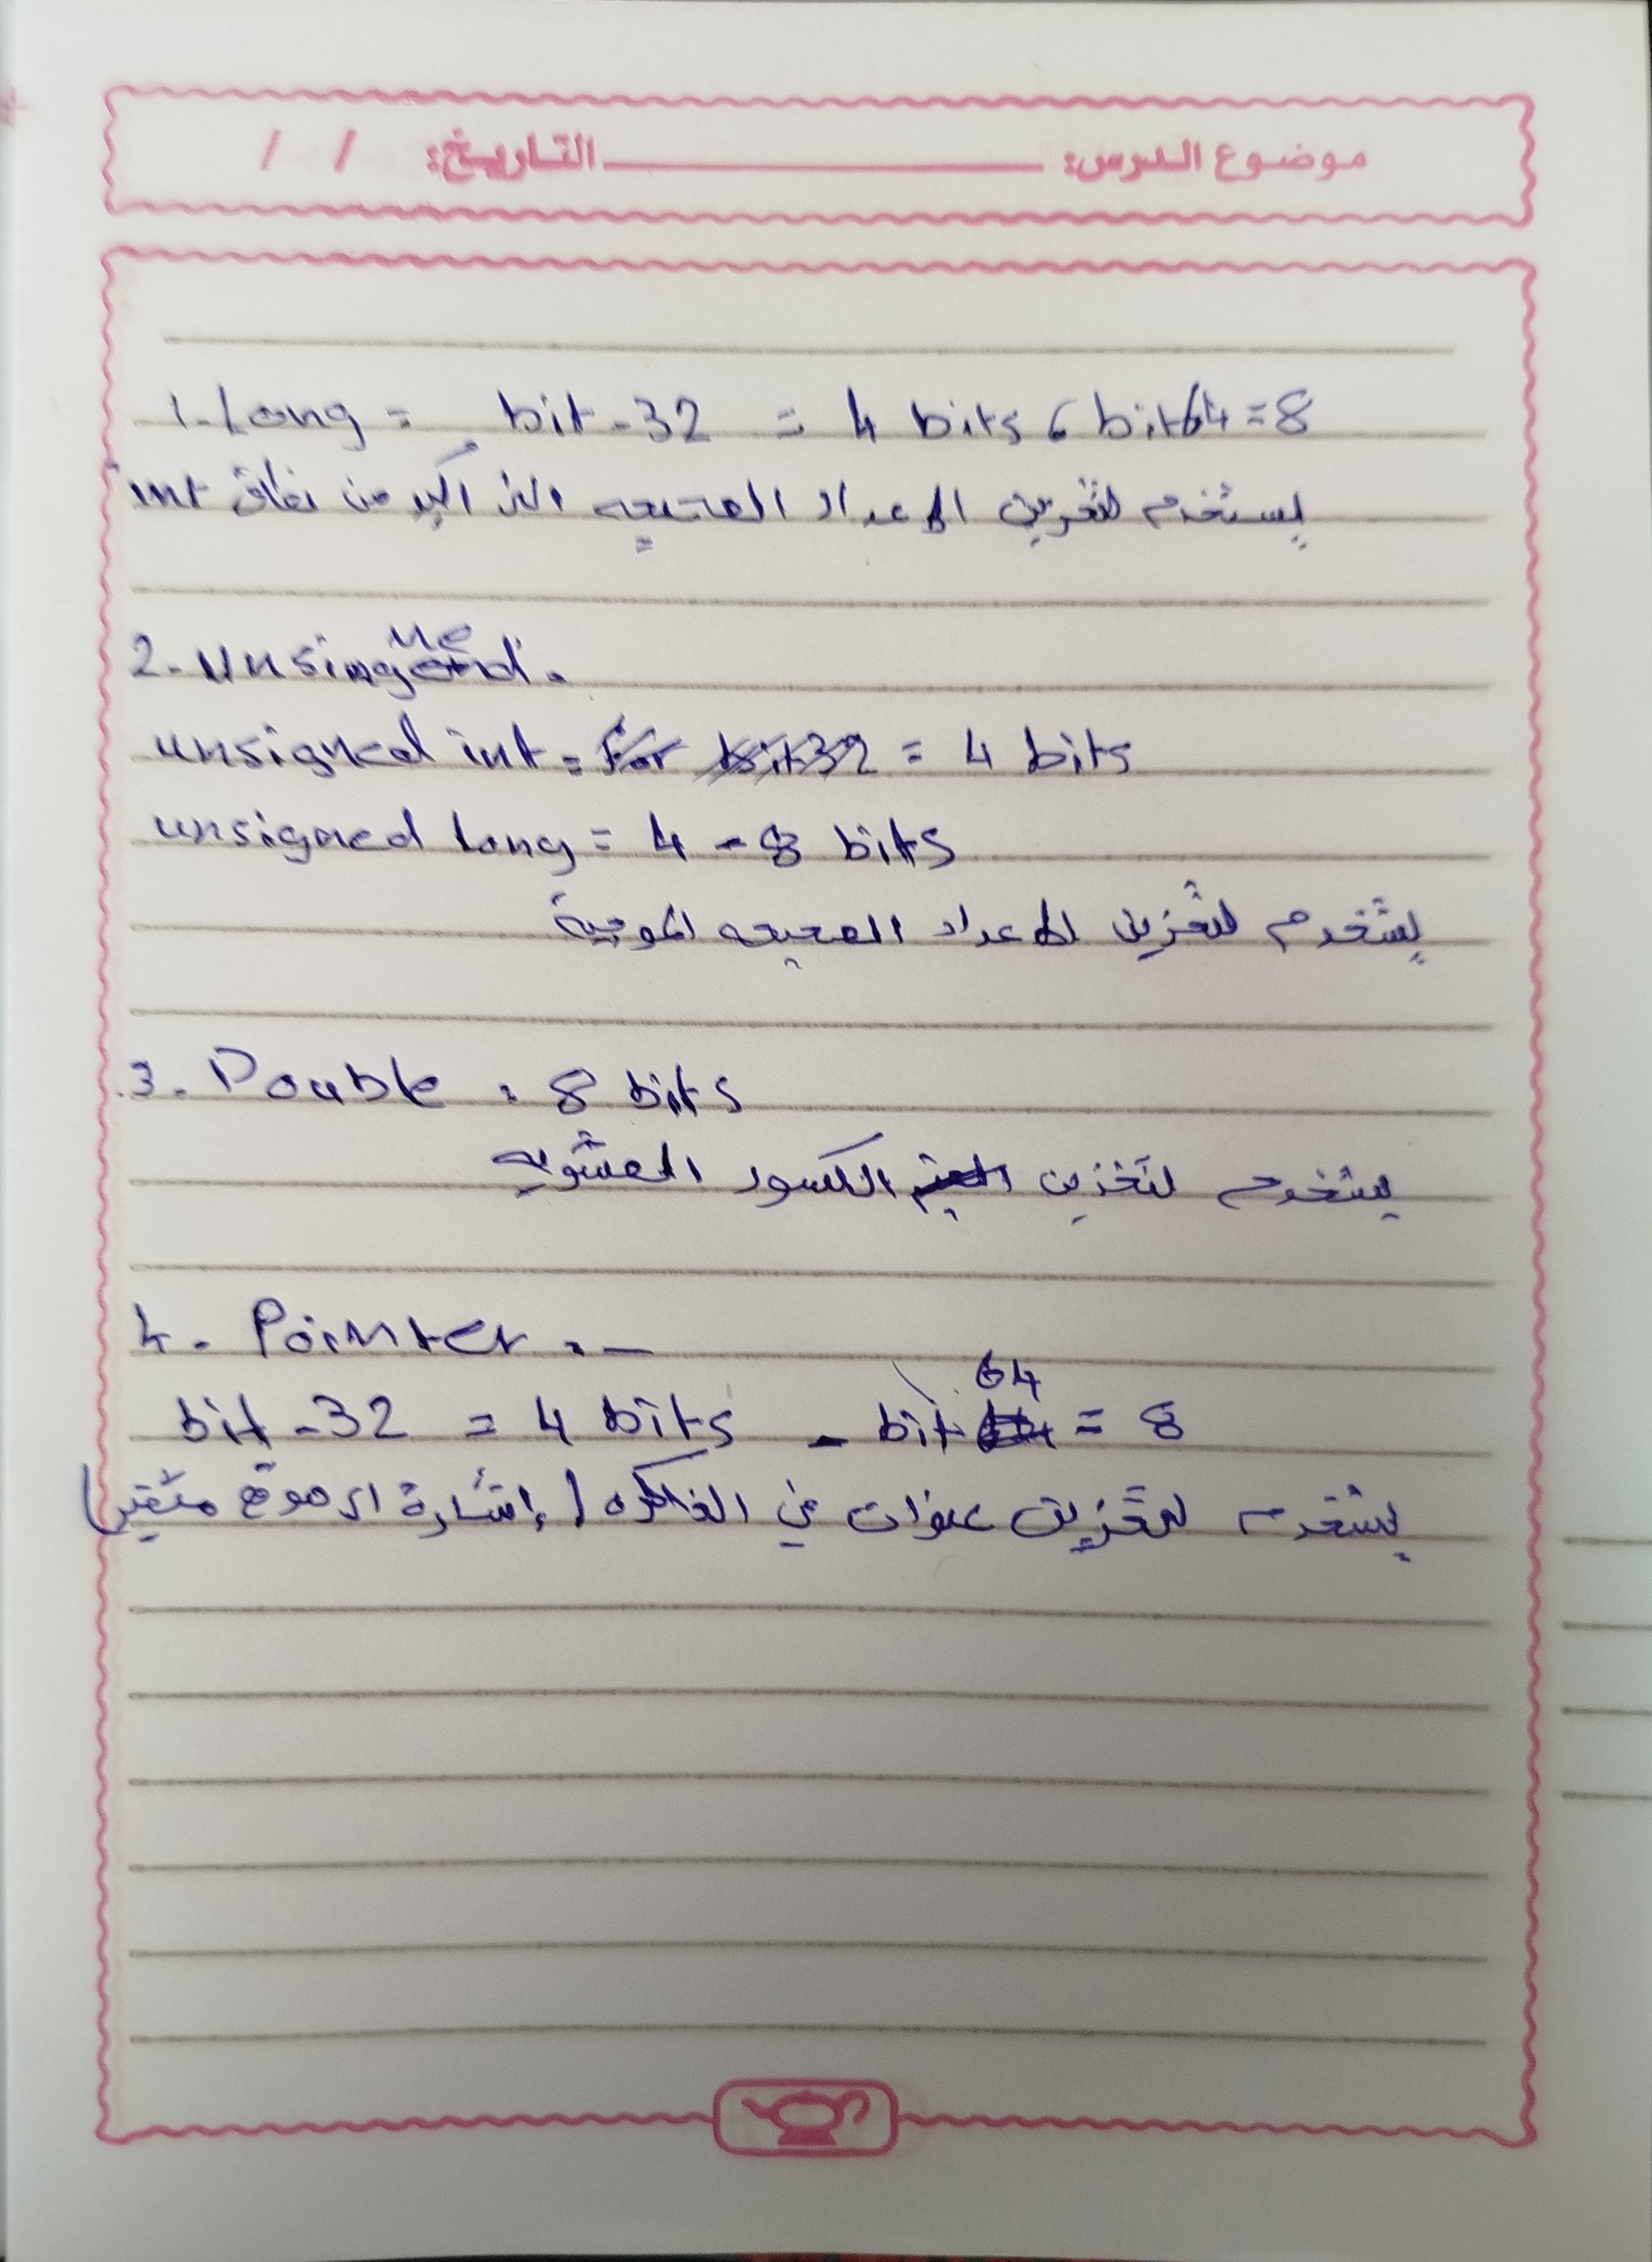 موضوع الدرس: التاريخ: / /
1. Long = bit - 32 = 4 bits 6 bit 64 = 8
يستخدم لتخزين الاعداد الصحيحه التي اكبر من نطاق int
2- Unsingned.
unsigned int = For bit 32 = 4 bits
unsigned Long = 4 - 8 bits
يستخدم لتخزين الاعداد الصحيحه الموجبة
3. Double : 8 bits
يستخدم لتخزين الكسور العشويه
4. Pointer : -
bit - 32 = 4 bits - bit 64 = 8
يستخدم لتخزين عنوان في الذاكره (إشارة الى موقع متغير)